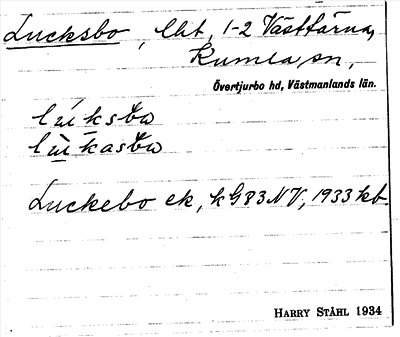 Lucksbo, lht, 1-2 Västtärna,
Kumla sn,
Övertjurbo hd, Västmanlands län.
Luckebo ek, kG83NV, 1933 kb.
HARRY STÅHL 1934